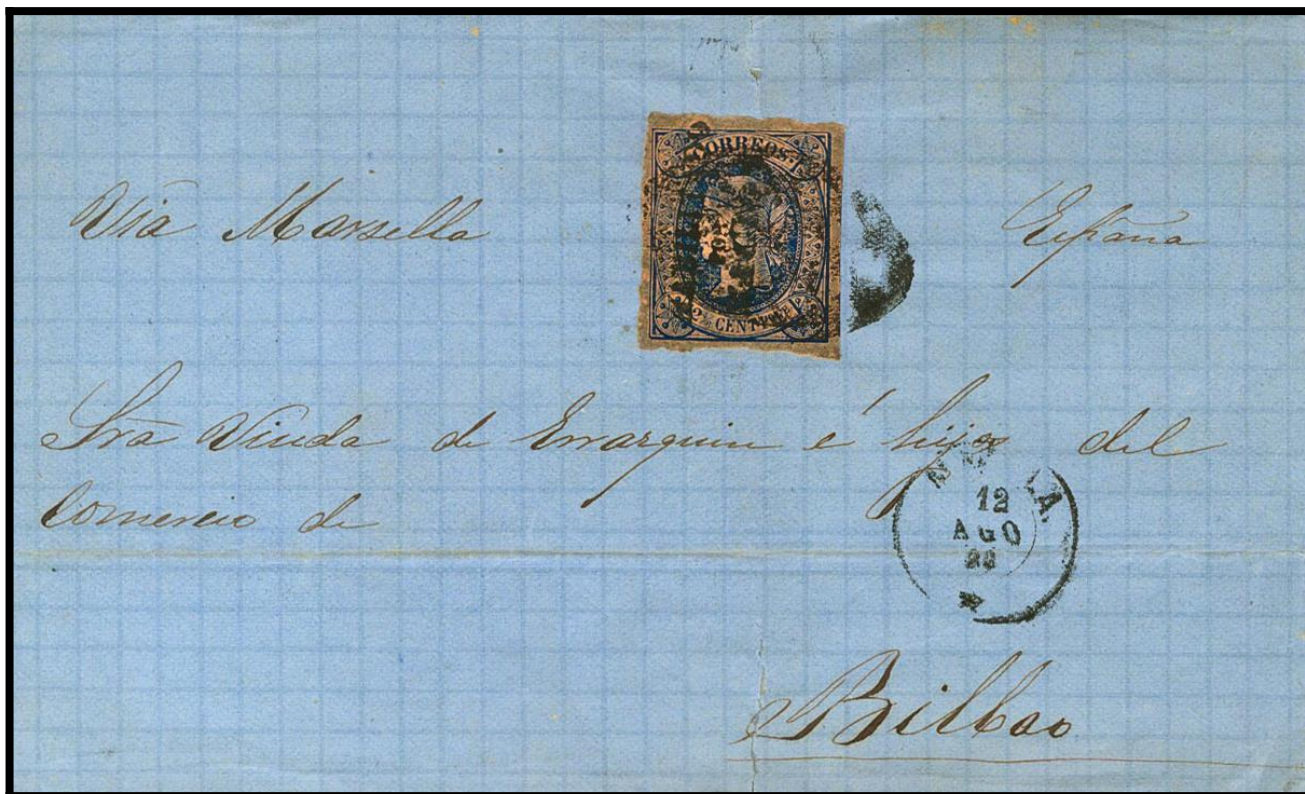 CORREOS
CENT
Via Marsella España
Sra Viuda de Errarquin é hijos del
Comercio de
12
AGO
Bilbao